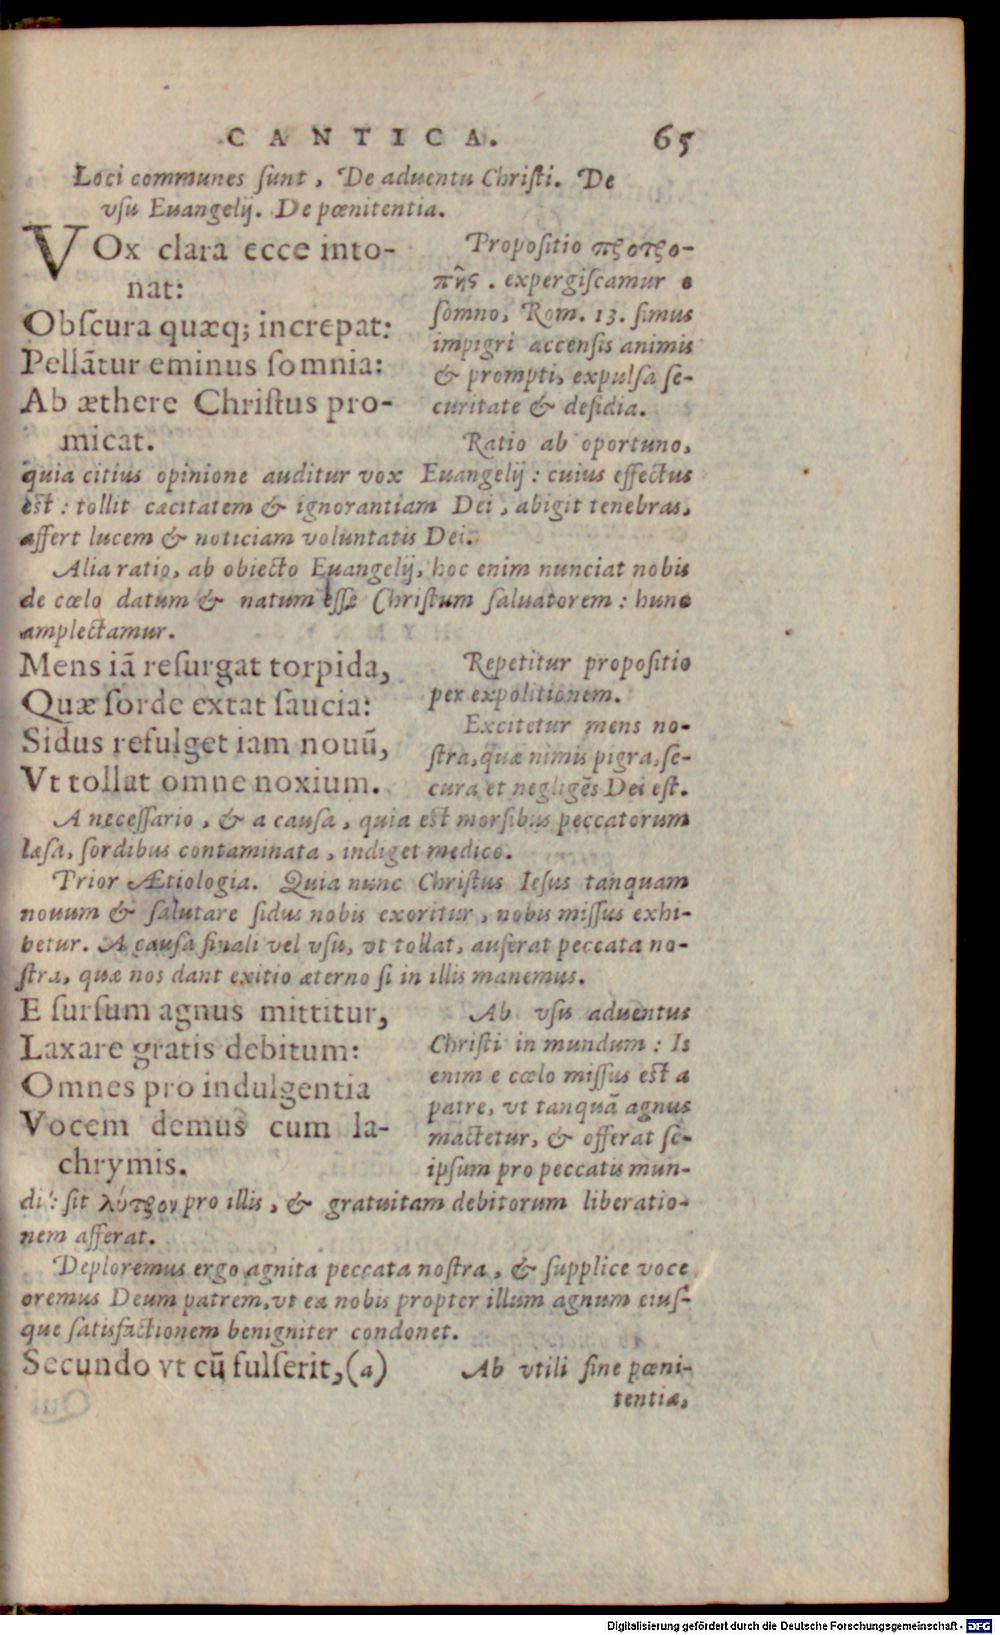 CANTICA. 65
Loci communes ſunt, De aduentu Chriſti. De
vſu Euangelij. De pœnitentia.
VOx clara ecce into-
nat:
Obſcura quæq; increpat:
Pellãtur eminus ſomnia:
Ab æthere Chriſtus pro-
micat.
Propoſitio προτρο-
πῆς. expergiſcamur e
ſomno, Rom. 13. ſimus
impigri accenſis animis
& prompti, expulſa ſe-
curitate & deſidia.
Ratio ab oportuno,
quia citius opinione auditur vox Euangelij: cuius effectus
eſt: tollit cæcitatem & ignorantiam Dei, abigit tenebras,
affert lucem & noticiam voluntatis Dei.
Alia ratio, ab obiecto Euangelij, hoc enim nunciat nobis
de cœlo datum & natum eſſe Chriſtum ſaluatorem: hunc
amplectamur.
Mens iã reſurgat torpida,
Quæ ſorde extat ſaucia:
Sidus refulget iam nouũ,
Vt tollat omne noxium.
Repetitur propoſitio
per expolitionem.
Excitetur mens no-
ſtra, quæ nimis pigra, ſe-
cura et negligẽs Dei eſt.
A neceſſario, & a cauſa, quia eſt morſibus peccatorum
læſa, ſordibus contaminata, indiget medico.
Prior Ætiologia. Quia nunc Chriſtus Ieſus tanquam
nouum & ſalutare ſidus nobis exoritur, nobis miſſus exhi-
betur. A cauſa finali vel vſu, vt tollat, auferat peccata no-
ſtra, quæ nos dant exitio æterno ſi in illis manemus.
E ſurſum agnus mittitur,
Laxare gratis debitum:
Omnes pro indulgentia
Vocem demus cum la-
chrymis.
Ab vſu aduentus
Chriſti in mundum: Is
enim e cœlo miſſus eſt a
patre, vt tanquã agnus
mactetur, & offerat ſe-
ipſum pro peccatis mun-
di: ſit λύτρον pro illis, & gratuitam debitorum liberatio-
nem afferat.
Deploremus ergo agnita peccata noſtra, & ſupplice voce
oremus Deum patrem, vt ea nobis propter illum agnum eiuſ-
que ſatisfactionem benigniter condonet.
Secundo vt cũ fulſerit, (a)
Ab vtili fine pœni-
tentiæ,
Digitalisierung gefördert durch die Deutsche Forschungsgemeinschaft - DFG